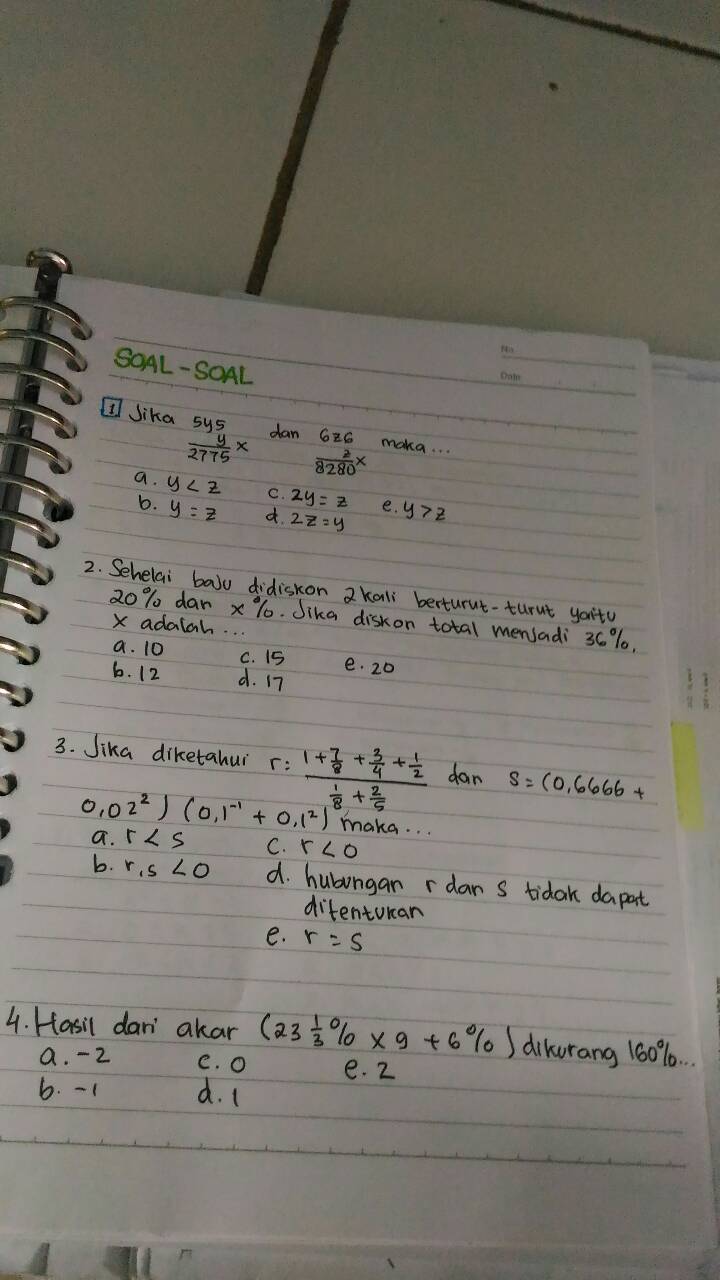 No
Date
SOAL-SOAL
1 Jika 5y5 dan 6z6 maka...
y x z x
2775 8280
a. y < z c. 2y = z e. y > z
b. y = z d. 2z = y
2. Sehelai baju didiskon 2 kali berturut-turut yaitu
20% dan x%. Jika diskon total menjadi 36%,
x adalah ...
a. 10 c. 15 e. 20
b. 12 d. 17
3. Jika diketahui r: (1 + 7/8 + 3/4 + 1/2) / (1/8 + 2/5) dan s = (0,6666 +
0,02²) (0,1⁻¹ + 0,1²) maka...
a. r < s c. r < 0
b. r,s < 0 d. hubungan r dan s tidak dapat
ditentukan
e. r = s
4. Hasil dari akar (23 1/3 % x 9 + 6%) dikurang 160%...
a. -2 c. 0 e. 2
b. -1 d. 1